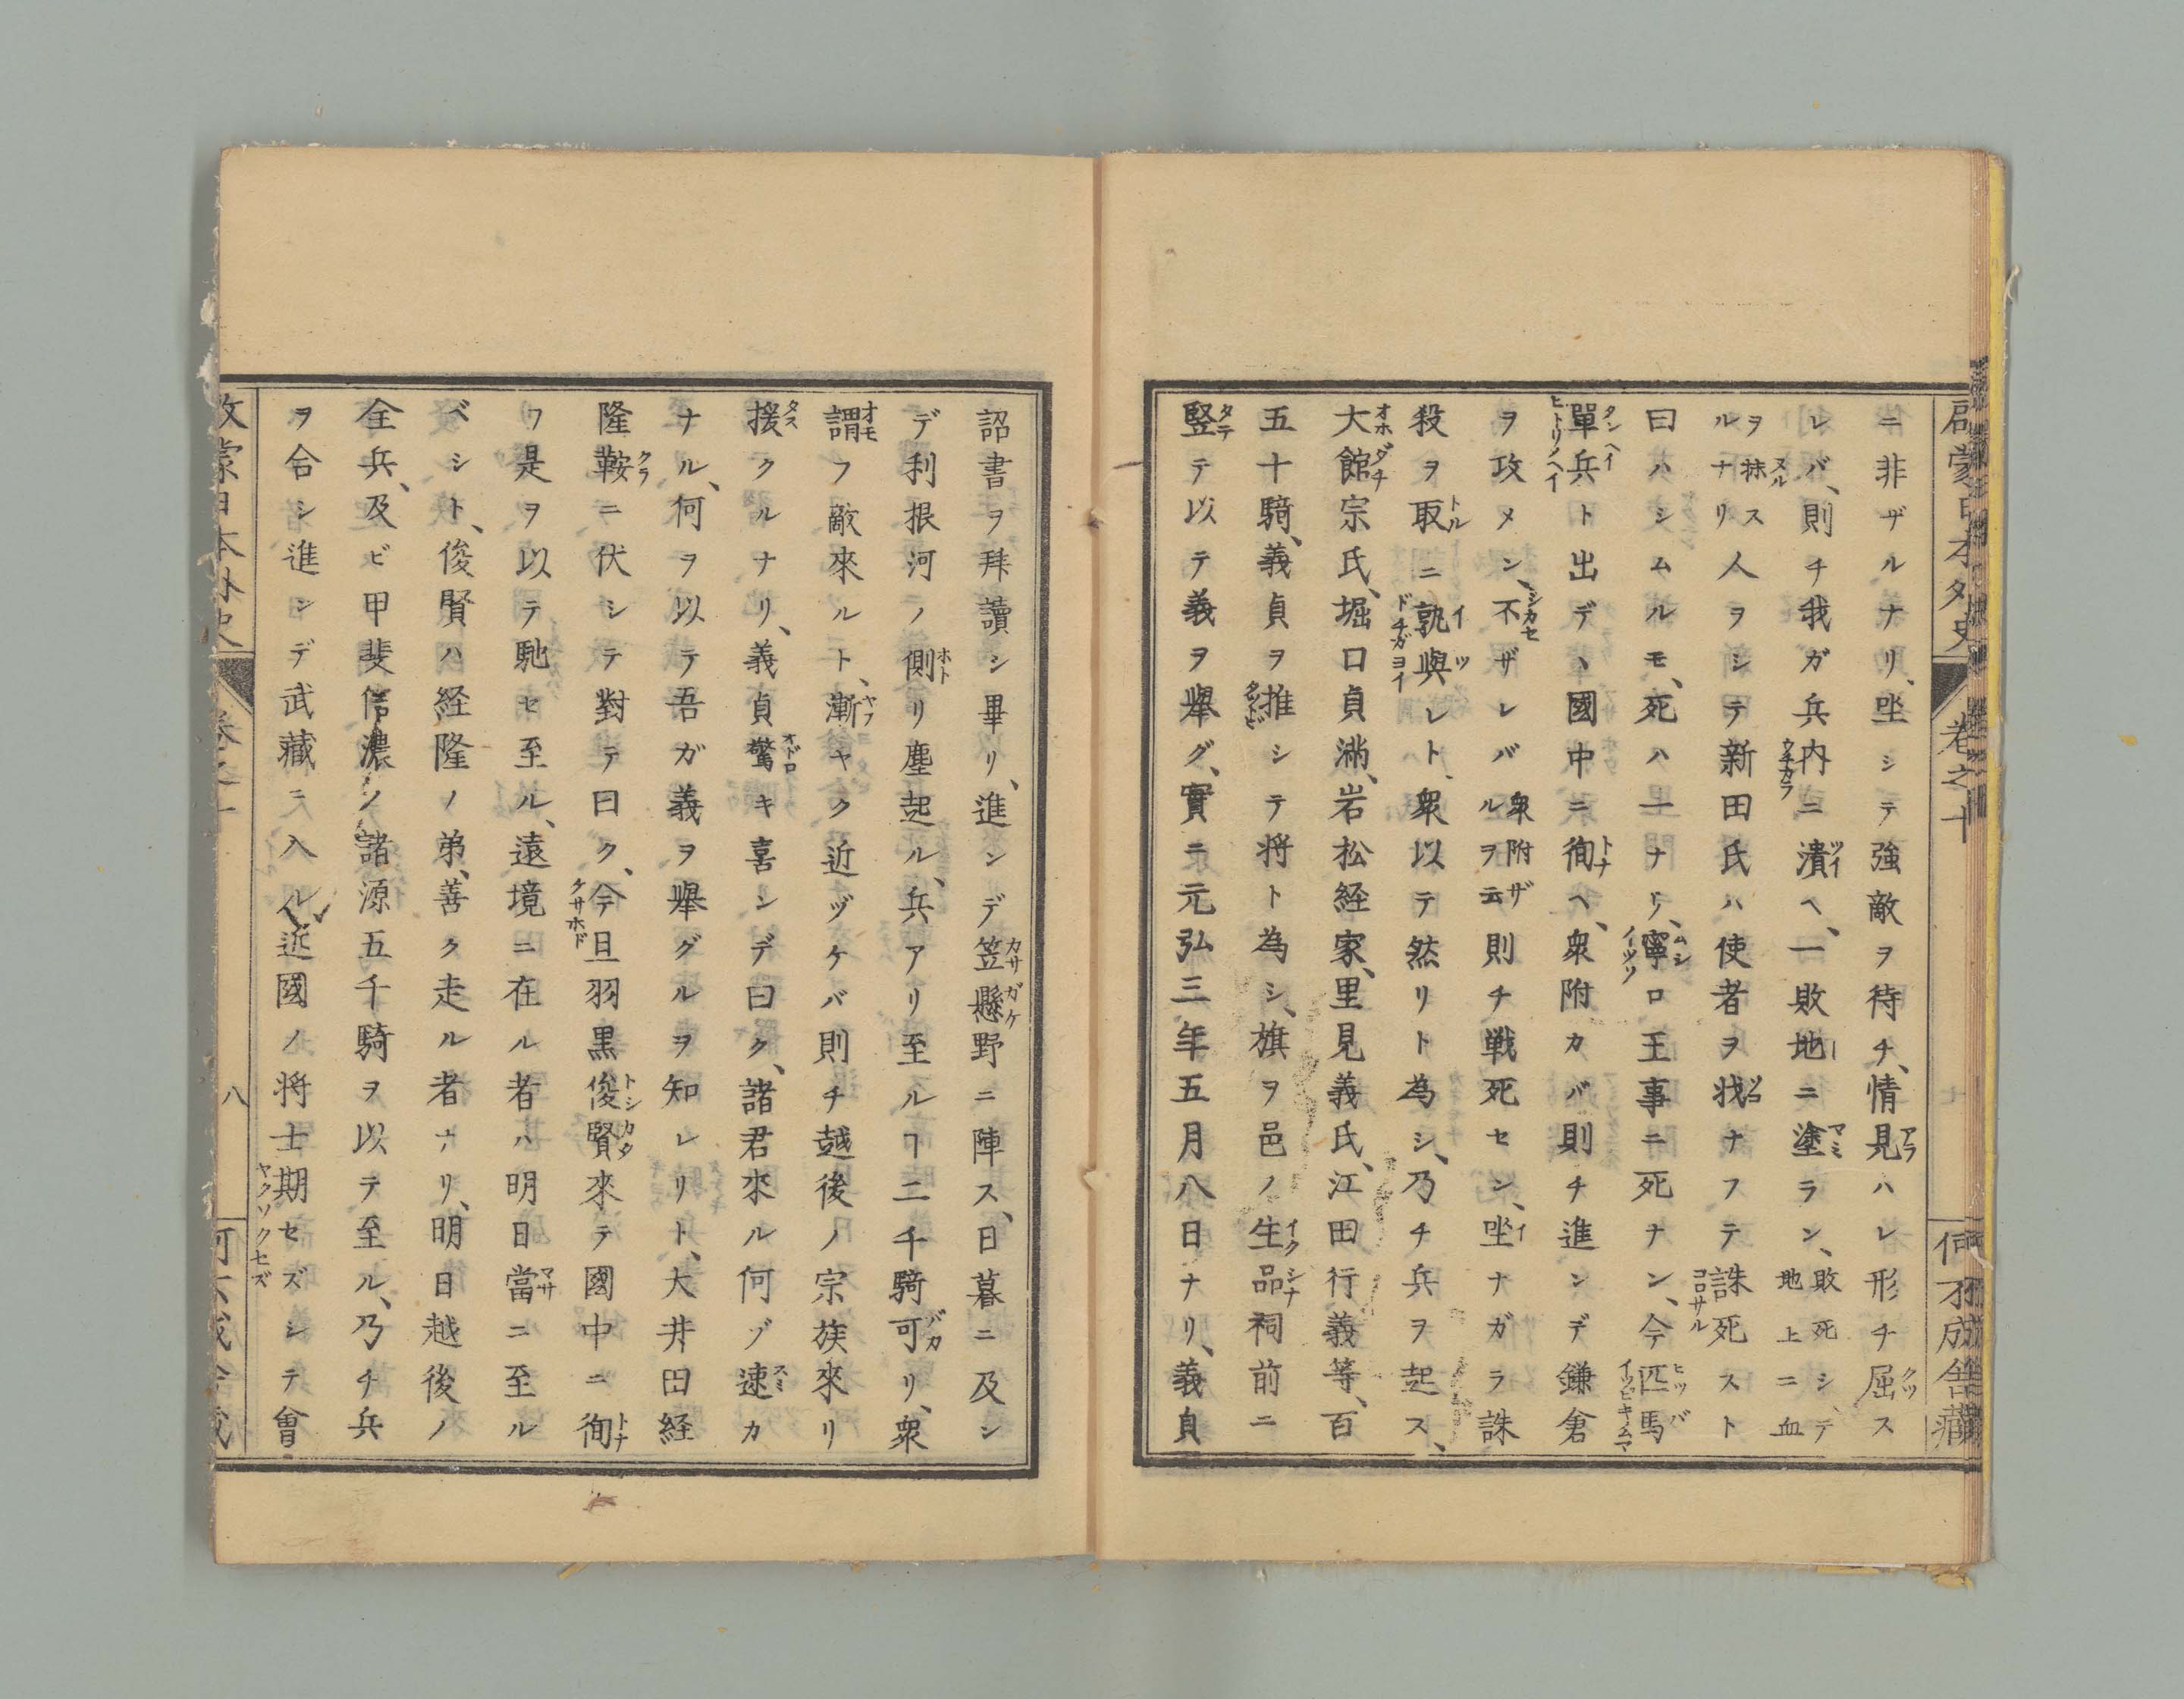 啓蒙日本外史 卷之十 何不成舎藏
ニ非ザルナリ、坐シテ強敵ヲ待チ、情見ハレ形チ屈ス
レバ、則チ我ガ兵内ニ潰ヘ、一敗地ニ塗ラン、敗死シ、テ地上ニ血
ヲ抹スルナリ人ヲシテ新田氏ハ使者ヲ戕ナフテ誅死スト
曰ハシムルモ、死ハ一ナリ、寧ロ王事ニ死ナン、今匹馬
單兵ト出デヽ國中ニ徇ヘ、衆附カバ則チ進ンデ鎌倉
ヲ攻メン、不ザレバ衆附ザルヲ云則チ戦死セン、坐ナガラ誅
殺ヲ取ニ孰與レト、衆以テ然リト為シ、乃チ兵ヲ起ス、
大館宗氏、堀口貞滿、岩松経家、里見義氏、江田行義等、百
五十騎、義貞ヲ推シテ将ト為シ、旗ヲ邑ノ生品祠前ニ
竪テ以テ義ヲ舉グ、實ニ元弘三年五月八日ナリ、義貞
詔書ヲ拜讀シ畢リ、進ンデ笠懸野ニ陣ス、日暮ニ及ン
デ利根河ノ側リ塵起ル、兵アリ至ルヿ二千騎可リ、衆
謂フ敵來ルト、漸ヤク近ヅケバ則チ越後ノ宗族來リ
援クルナリ、義貞驚キ喜ンデ曰ク、諸君來ル何ゾ速カ
ナル、何ヲ以テ吾ガ義ヲ舉グルヲ知レリト、大井田経
隆鞍ニ伏シテ對テ曰ク、今旦羽黒俊賢來テ國中ニ徇
フ是ヲ以テ馳セ至ル、遠境ニ在ル者ハ明日當ニ至ル
ベシト、俊賢ハ経隆ノ弟、善ク走ル者ナリ、明日越後ノ
全兵、及ビ甲斐信濃ノ諸源五千騎ヲ以テ至ル、乃チ兵
ヲ合シ進ンデ武藏ニ入ル近國ノ将士期セズシテ會
八